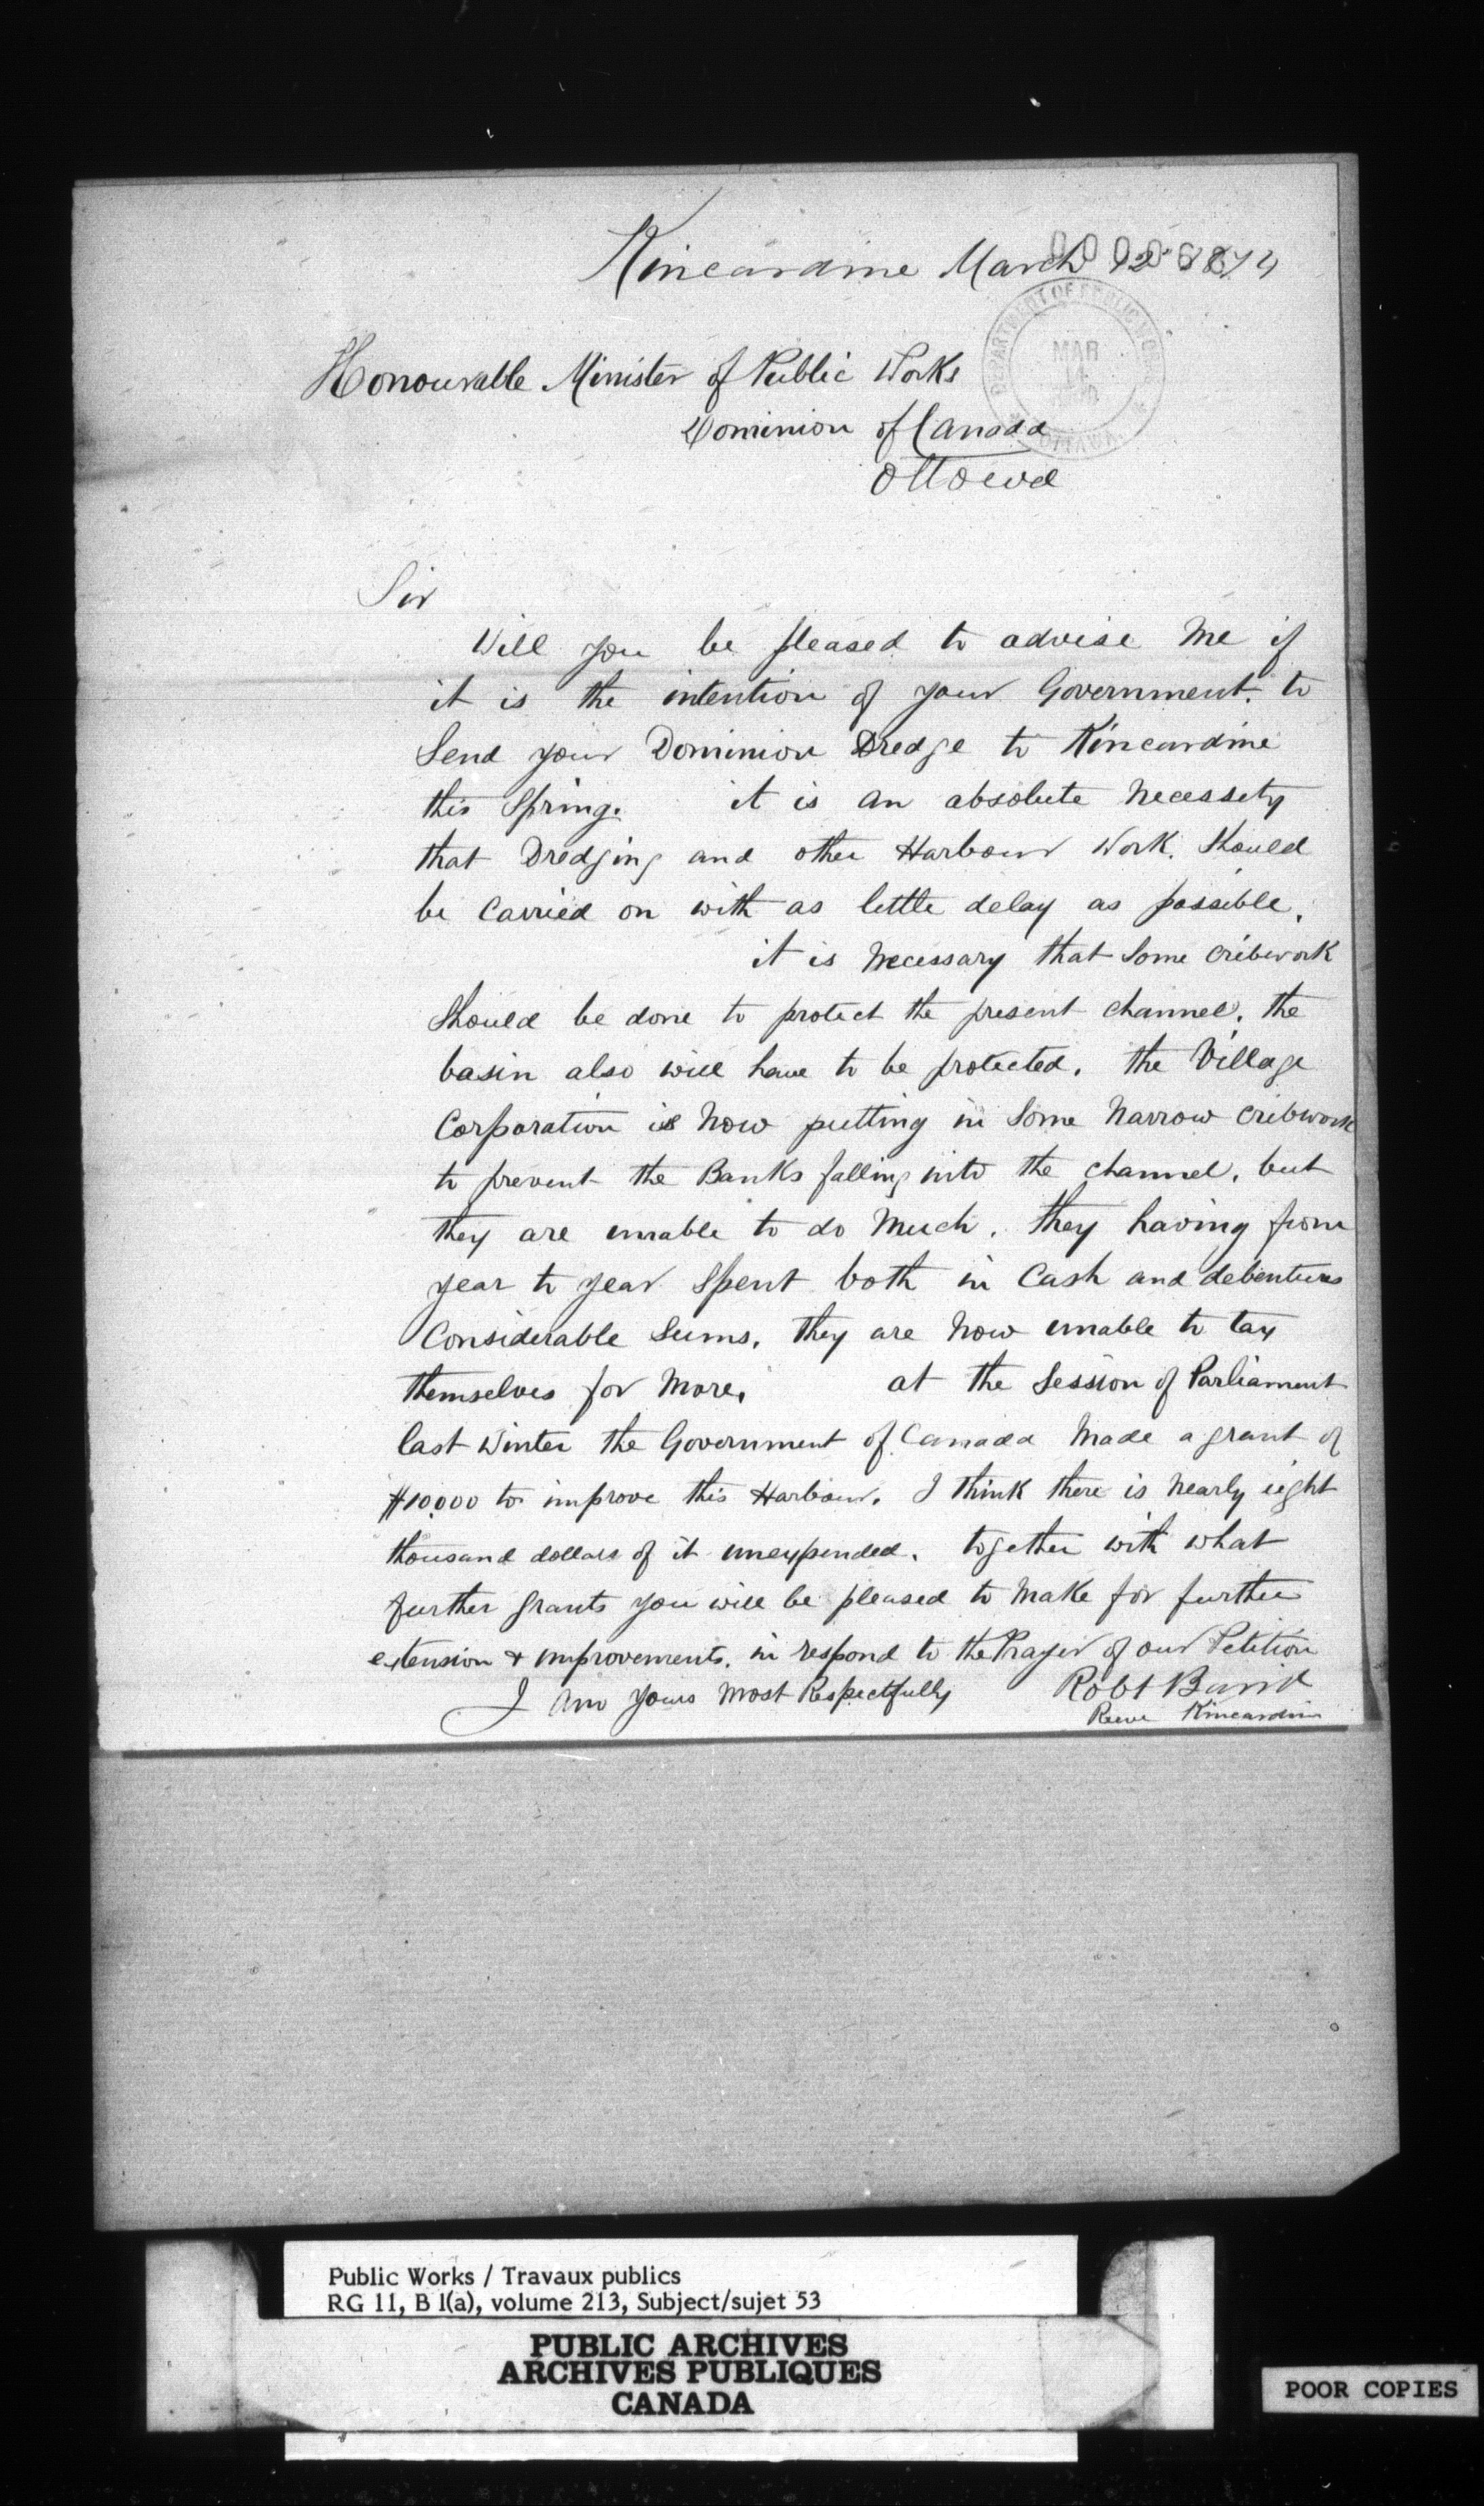 Kincardine March 12 1874
DEPARTMENT OF PUBLIC WORKS
MAR
OTTAWA
Honourable Minister of Public Works
Dominion of Canada
Ottowa
Sir
Will you be pleased to advise Me if
it is the intention of your Government. to
Send your Dominion Dredge to Kincardine
this Spring. it is an absolute Necessety
that Dredging and other Harbour Work. Should
be Carried on with as little delay as possible.
it is Necessary that Some Cribwork
Should be done to protect the present Channel. the
basin also will have to be protected. the Village
Corporation is Now putting in Some Narrow Cribwork
to prevent the Banks falling into the Channel. but
they are unable to do Much. they having from
year to year Spent both in Cash and debentures
Considerable Sums. they are Now unable to tax
themselves for More. at the Session of Parliament
last Winter the Government of Canada Made a grant of
$10,000 to improve this Harbour. I think there is Nearly eight
thousand dollars of it unexpended. together with what
further grants you will be pleased to Make for further
extension & improvements. in respond to the Prayer of our Petition
I am yours Most Respectfully Robt Baird
Reeve Kincardine
Public Works / Travaux publics
RG 11, B 1(a), volume 213, Subject/sujet 53
PUBLIC ARCHIVES
ARCHIVES PUBLIQUES
CANADA
POOR COPIES